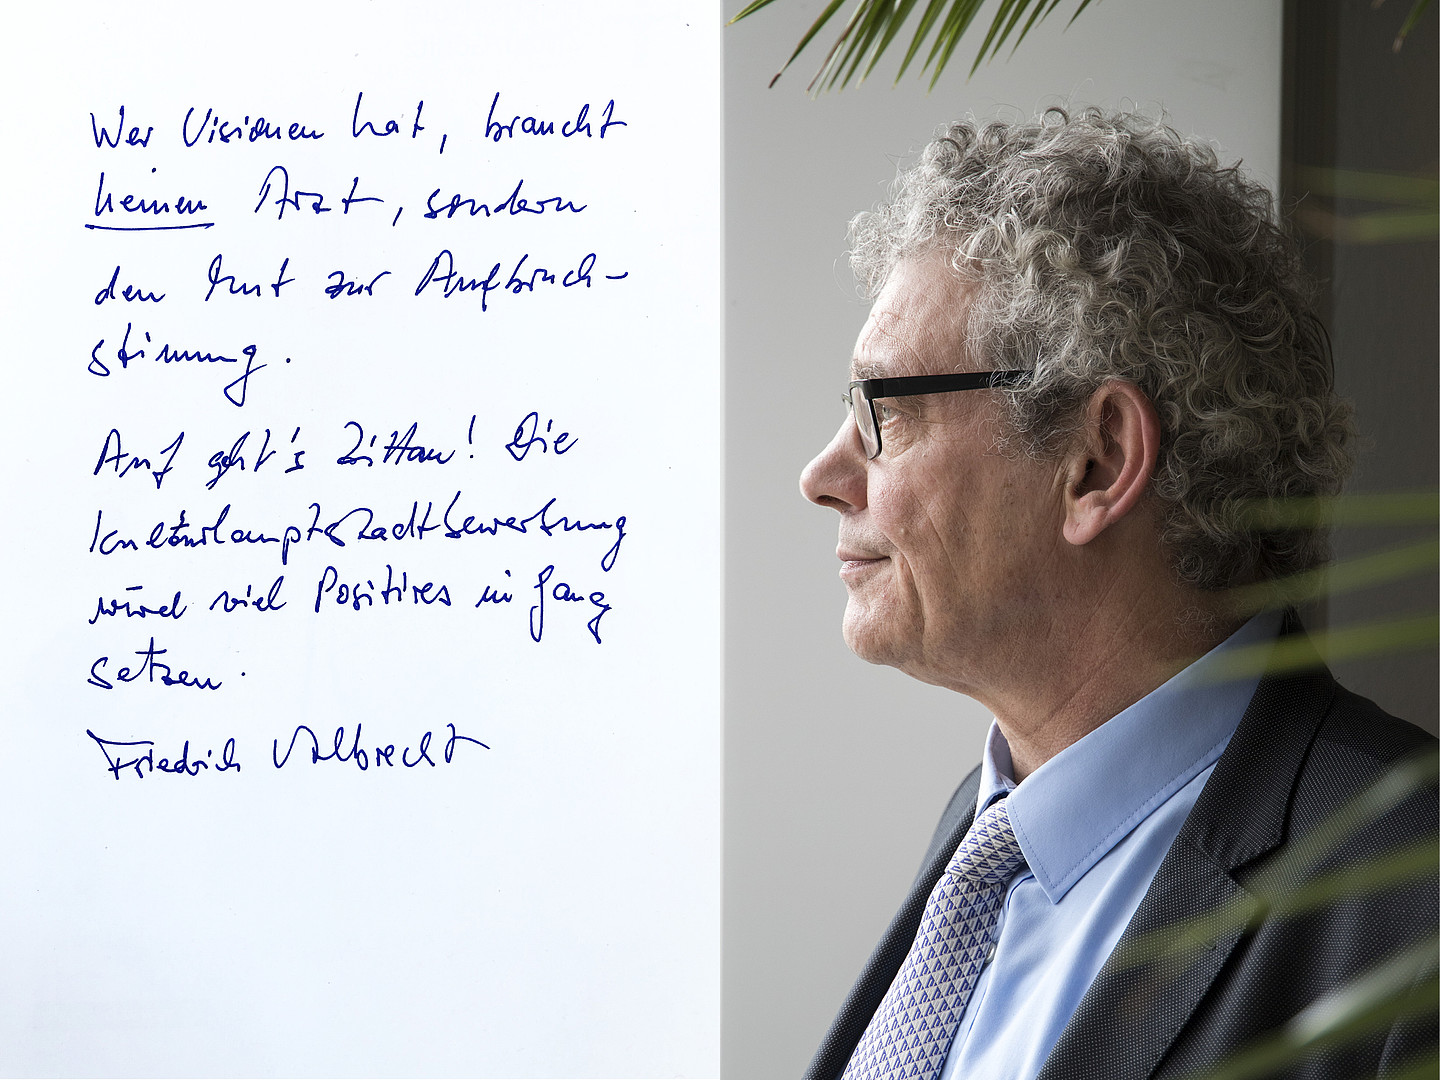 Wer Visionen hat, braucht
keinen Arzt, sondern
den Mut zur Aufbruch-
stimmung.
Auf geht's Zittau! Die
Kulturhauptstadtbewerbung
wird viel Positives in Gang
setzen.
Friedrich Albrecht